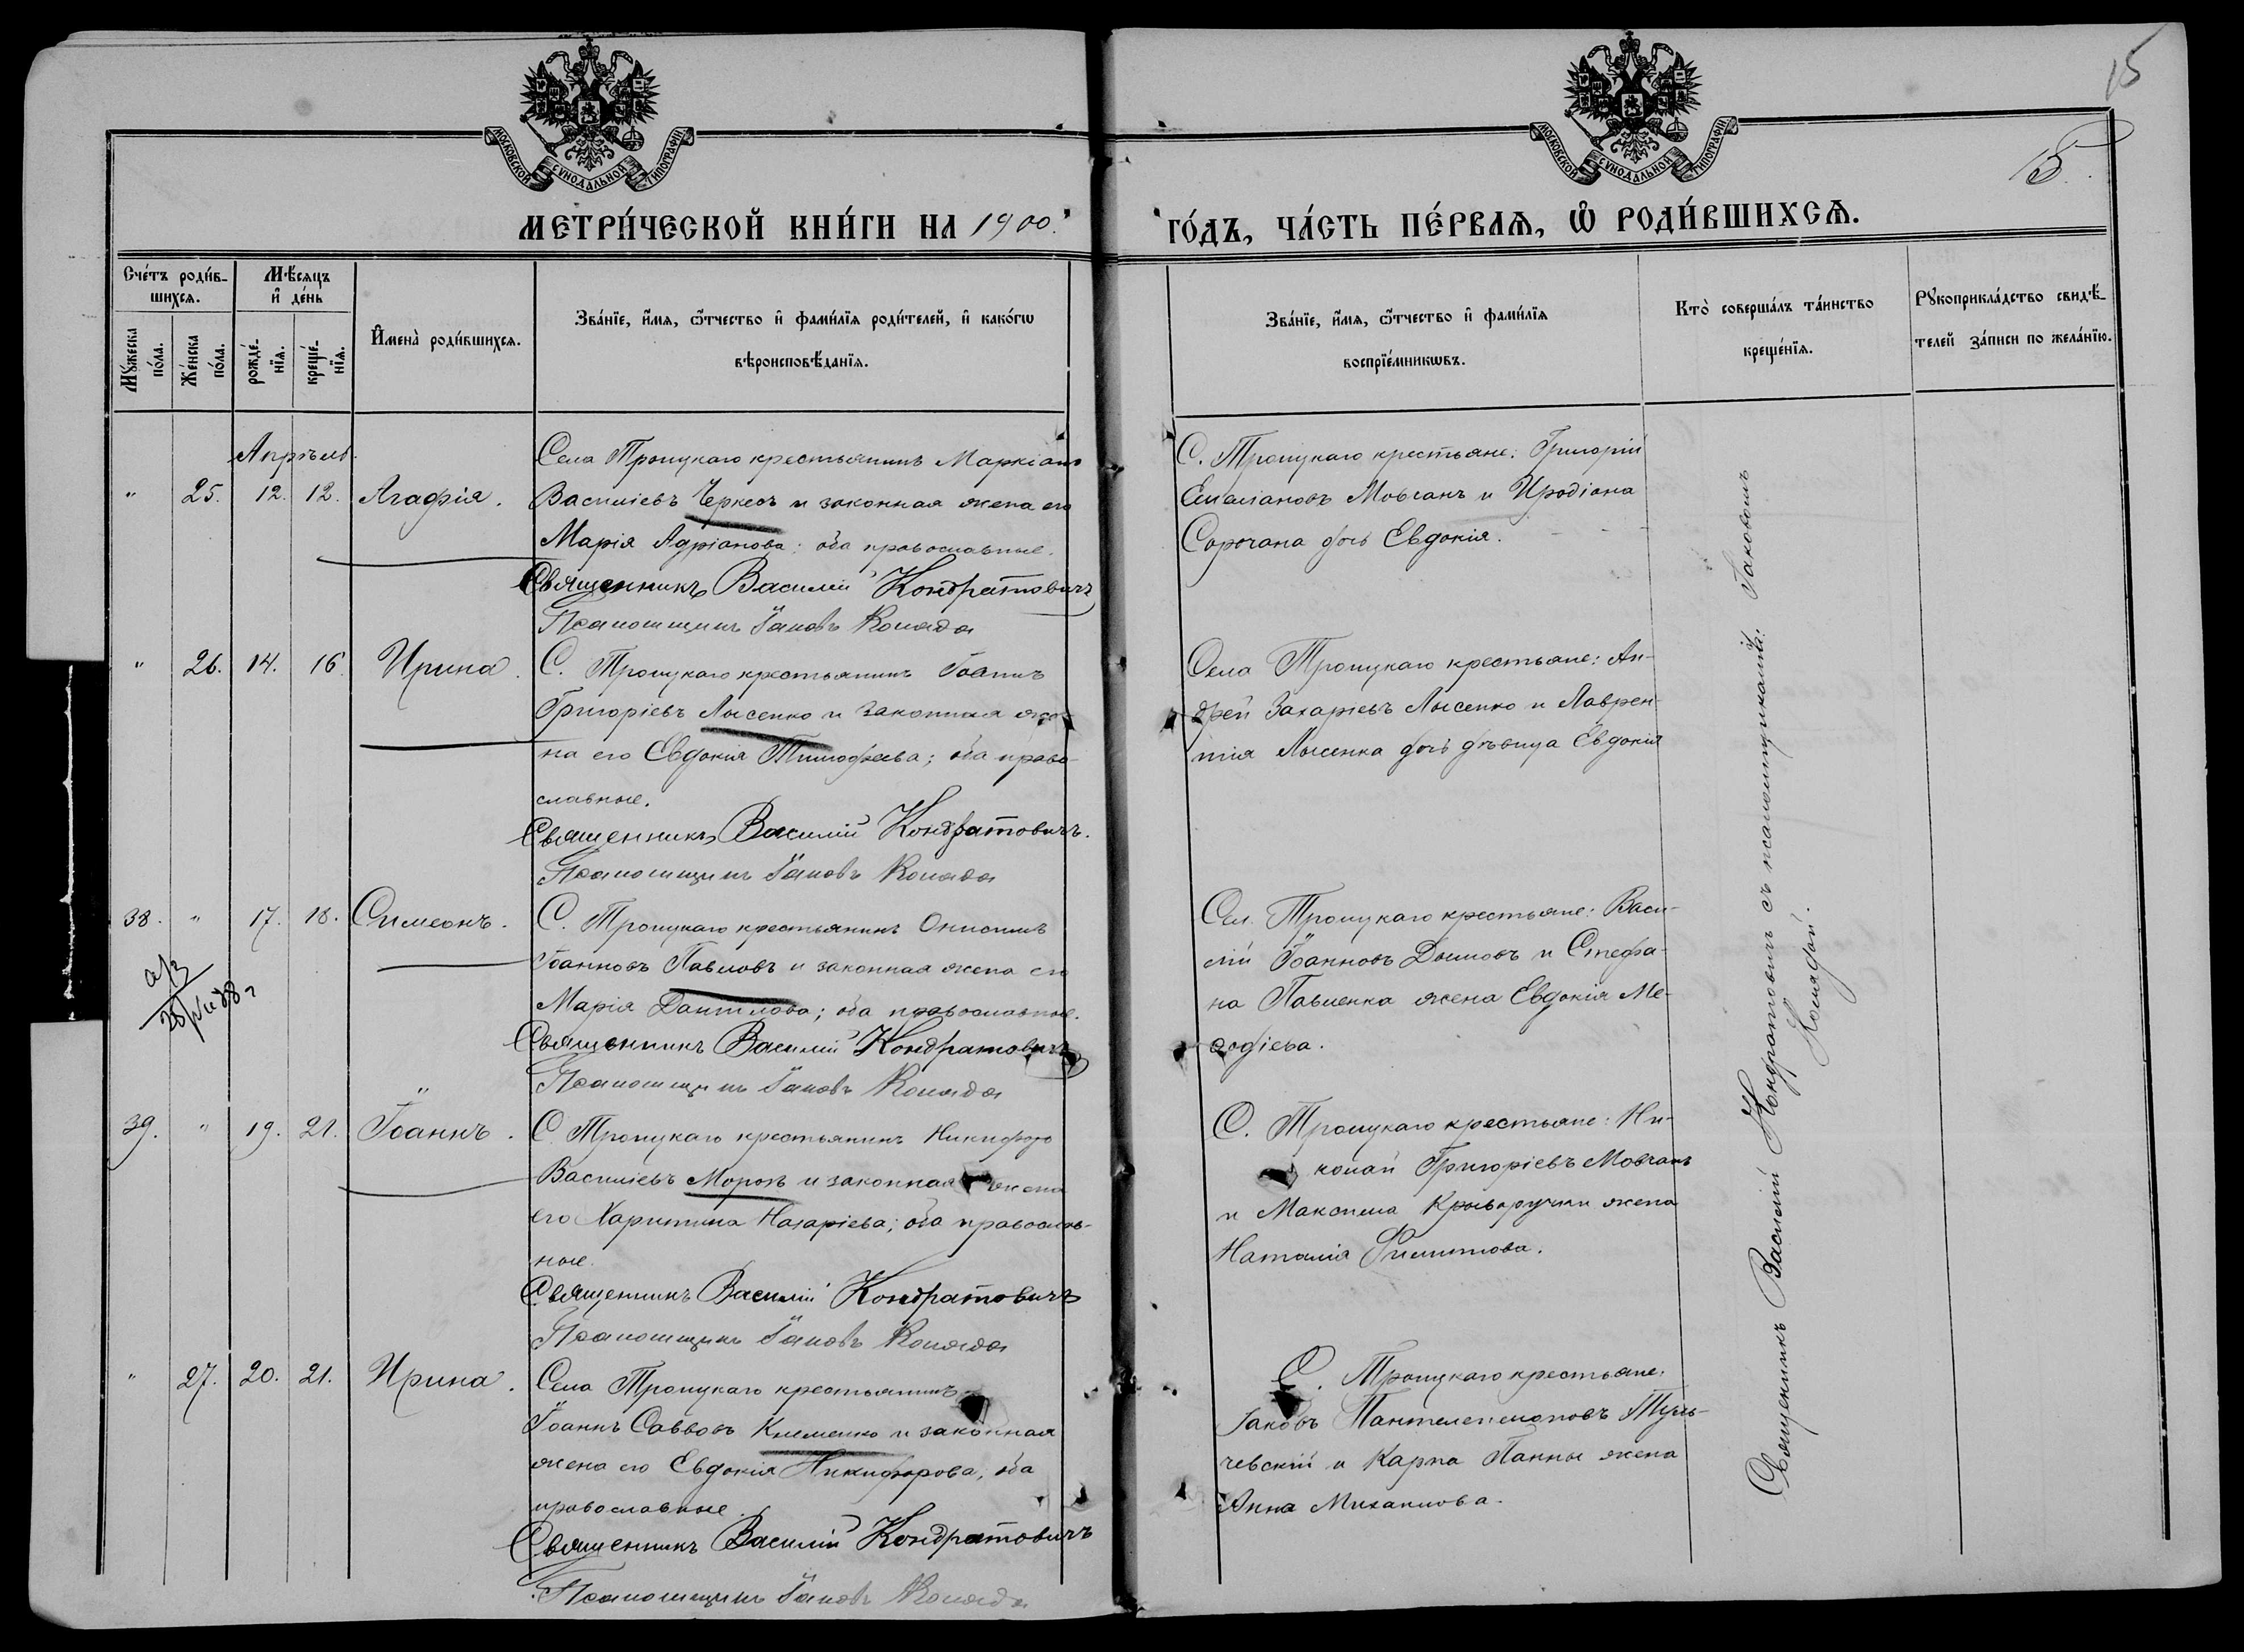 15
15.
МОСКОВСКОЙ СУНОДАЛЬНОЙ ТИПОГРАФІИ
МОСКОВСКОЙ СУНОДАЛЬНОЙ ТИПОГРАФІИ
МЕТРИ́ЧЕСКОЙ КНИ́ГИ НА 1900.
ГО́ДЪ, ЧА́СТЬ ПЕ́РВАѦ, Ѽ РОДИ́ВШИХСѦ.
Сче́тъ роди́в-
шихсѧ.
Мꙋ́жеска по́ла.
Же́нска по́ла.
Мѣ́сѧцъ
и҆ де́нь
рожде́-нїѧ.
креще́-нїѧ.
И҆мена̀ роди́вшихсѧ.
Зва́нїе, и҆́мѧ, ѻ҆́тчество и҆ фами́лїѧ роди́телей, и҆ како́гѡ
вѣроисповѣ́данїѧ.
Зва́нїе, и҆́мѧ, ѻ҆́тчество и҆ фами́лїѧ
воспрїе́мникѡвъ.
Кто̀ соверша́лъ та́инство
креще́нїѧ.
Рꙋкоприкла́дство свидѣ́-
телей за́писи по жела́нїю.
Апрѣль.
" 25. 12. 12. Агафія.
Села Троицкаго крестьянинъ Маркіанъ
Василіевъ Черкесъ и законная жена его
Марія Адріанова; оба православные.
Священникъ Василій Кондратовичъ
Псаломщикъ Іаковъ Коляда
С. Троицкаго крестьяне: Григорій
Емеліановъ Мовчанъ и Иродіона
Сорочана дочь Евдокія.
" 26. 14. 16. Ирина.
С. Троицкаго крестьянинъ Іоаннъ
Григоріевъ Лысенко и законная же-
на его Евдокія Тимофеева; оба право-
славные.
Священникъ Василій Кондратовичъ.
Псаломщикъ Іаковъ Коляда
Села Троицкаго крестьяне: Ан-
дрей Захаріевъ Лысенко и Лаврен-
тія Лысенка дочь дѣвица Евдокія
38. " 17. 18. Симеонъ.
С. Троицкаго крестьянинъ Онисимъ
Іоанновъ Павловъ и законная жена его
Марія Даниилова; оба православные.
Священникъ Василій Кондратовичъ
Псаломщикъ Іаковъ Коляда
Сел. Троицкаго крестьяне: Васи-
лій Іоанновъ Дымовъ и Стефа-
на Павленка жена Евдокія Ме-
ѳодіева.
39. " 19. 21. Іоаннъ.
С. Троицкаго крестьянинъ Никифоръ
Василіевъ Морозъ и законная жена
его Харитина Назаріева; оба православ-
ные.
Священникъ Василій Кондратовичъ
Псаломщикъ Іаковъ Коляда
С. Троицкаго крестьяне: Ни-
колай Григоріевъ Мовчанъ
и Максима Криворучки жена
Наталія Филиппова.
" 27. 20. 21. Ирина.
Села Троицкаго крестьянинъ
Іоаннъ Саввовъ Клименко и законная
жена его Евдокія Никифорова; оба
православные.
Священникъ Василій Кондратовичъ
Псаломщикъ Іаковъ Коляда
С. Троицкаго крестьяне:
Іаковъ Пантелеимоновъ Туль-
чевскій и Карпа Панны жена
Анна Михаилова.
Священникъ Василій Кондратовичъ съ псаломщикомъ Іаковомъ
Колядой.